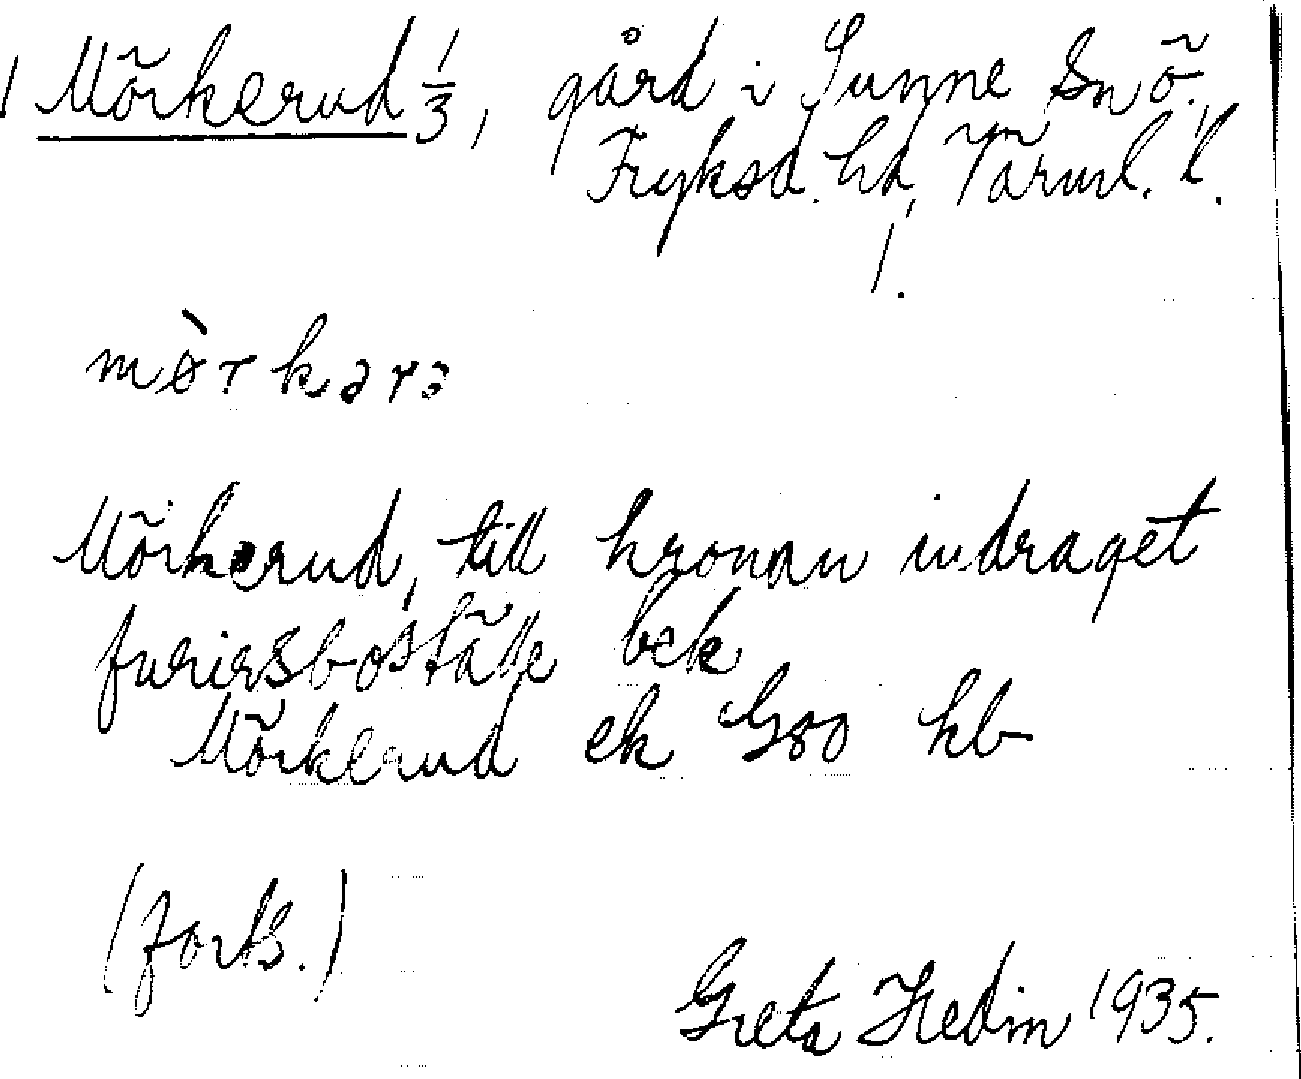 Mörkerud 1/3, gård i Sunne sn ö.
Fryksd. hd, Värml. l.
mør kərə
Mörkerud, till kronan indraget
furirsboställe bek
Mörkerud ek G80 hb
(forts.)
Greta Hedin 1935.